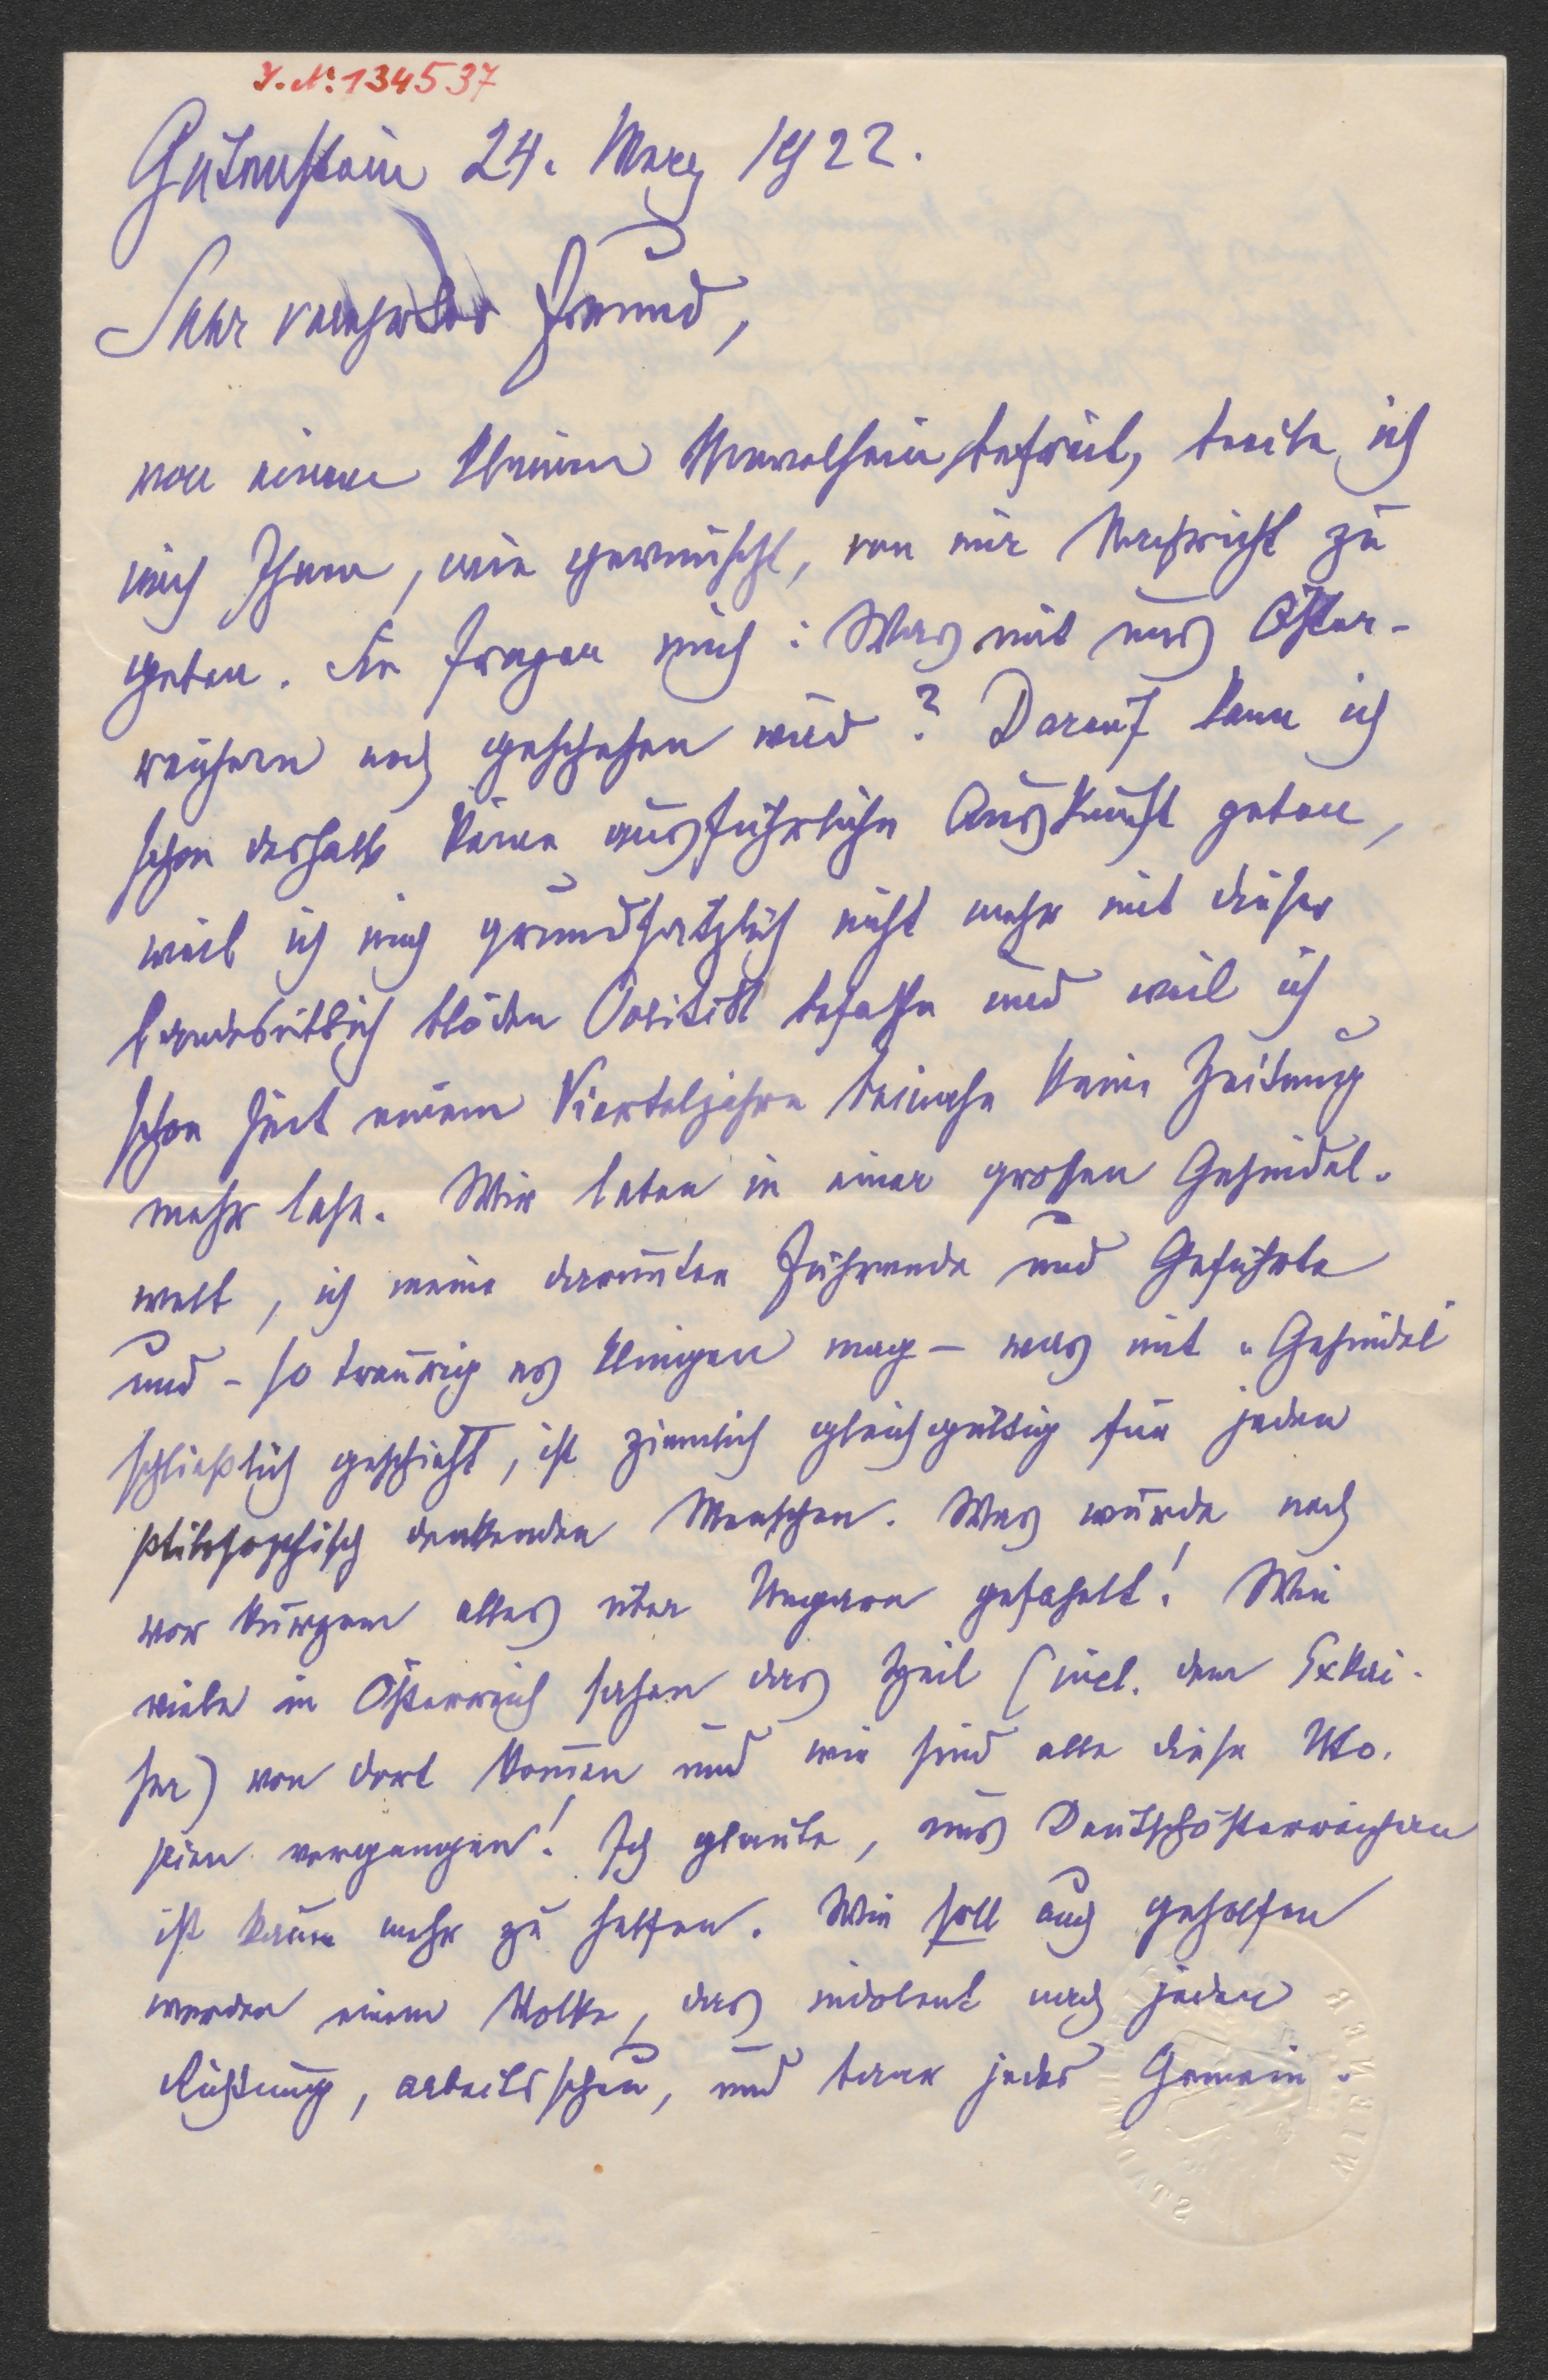 I. N. 134537
Gutenstein 24. März 1922.
Sehr verehrter Freund,
von einem kleinen Unwohlsein befreit, beeile ich
mich Ihnen, wie gewünscht, von mir Nachricht zu
geben. Sie fragen mich: Was mit uns Öster-
reichern noch geschehen wird? Darauf kann ich
schon deshalb keine ausführliche Auskunft geben,
weil ich mich grundsätzlich nicht mehr mit dieser
landesüblich blöden Politik befasse und weil ich
schon seit einem Vierteljahre beinahe keine Zeitung
mehr lese. Wir leben in einer grossen Gesindel-
welt, ich meine darunter Führende und Geführte
und – so traurig es klingen mag – was mit „Gesindel"
schließlich geschieht, ist ziemlich gleichgültig für jeden
philosophisch denkenden Menschen. Was wurde noch
vor kurzem alles über Ungarn gefaselt! Wie
viele in Österreich sahen das Heil (incl. dem Exkai-
ser) von dort kommen und wie sind alle diese Uto-
pien vergangen! Ich glaube, uns Deutschösterreichern
ist kaum mehr zu helfen. Wie soll auch geholfen
werden einem Volke, das indolent nach jeder
Richtung, arbeitsscheu, und baar jedes Gemein-
WIENER
STADT